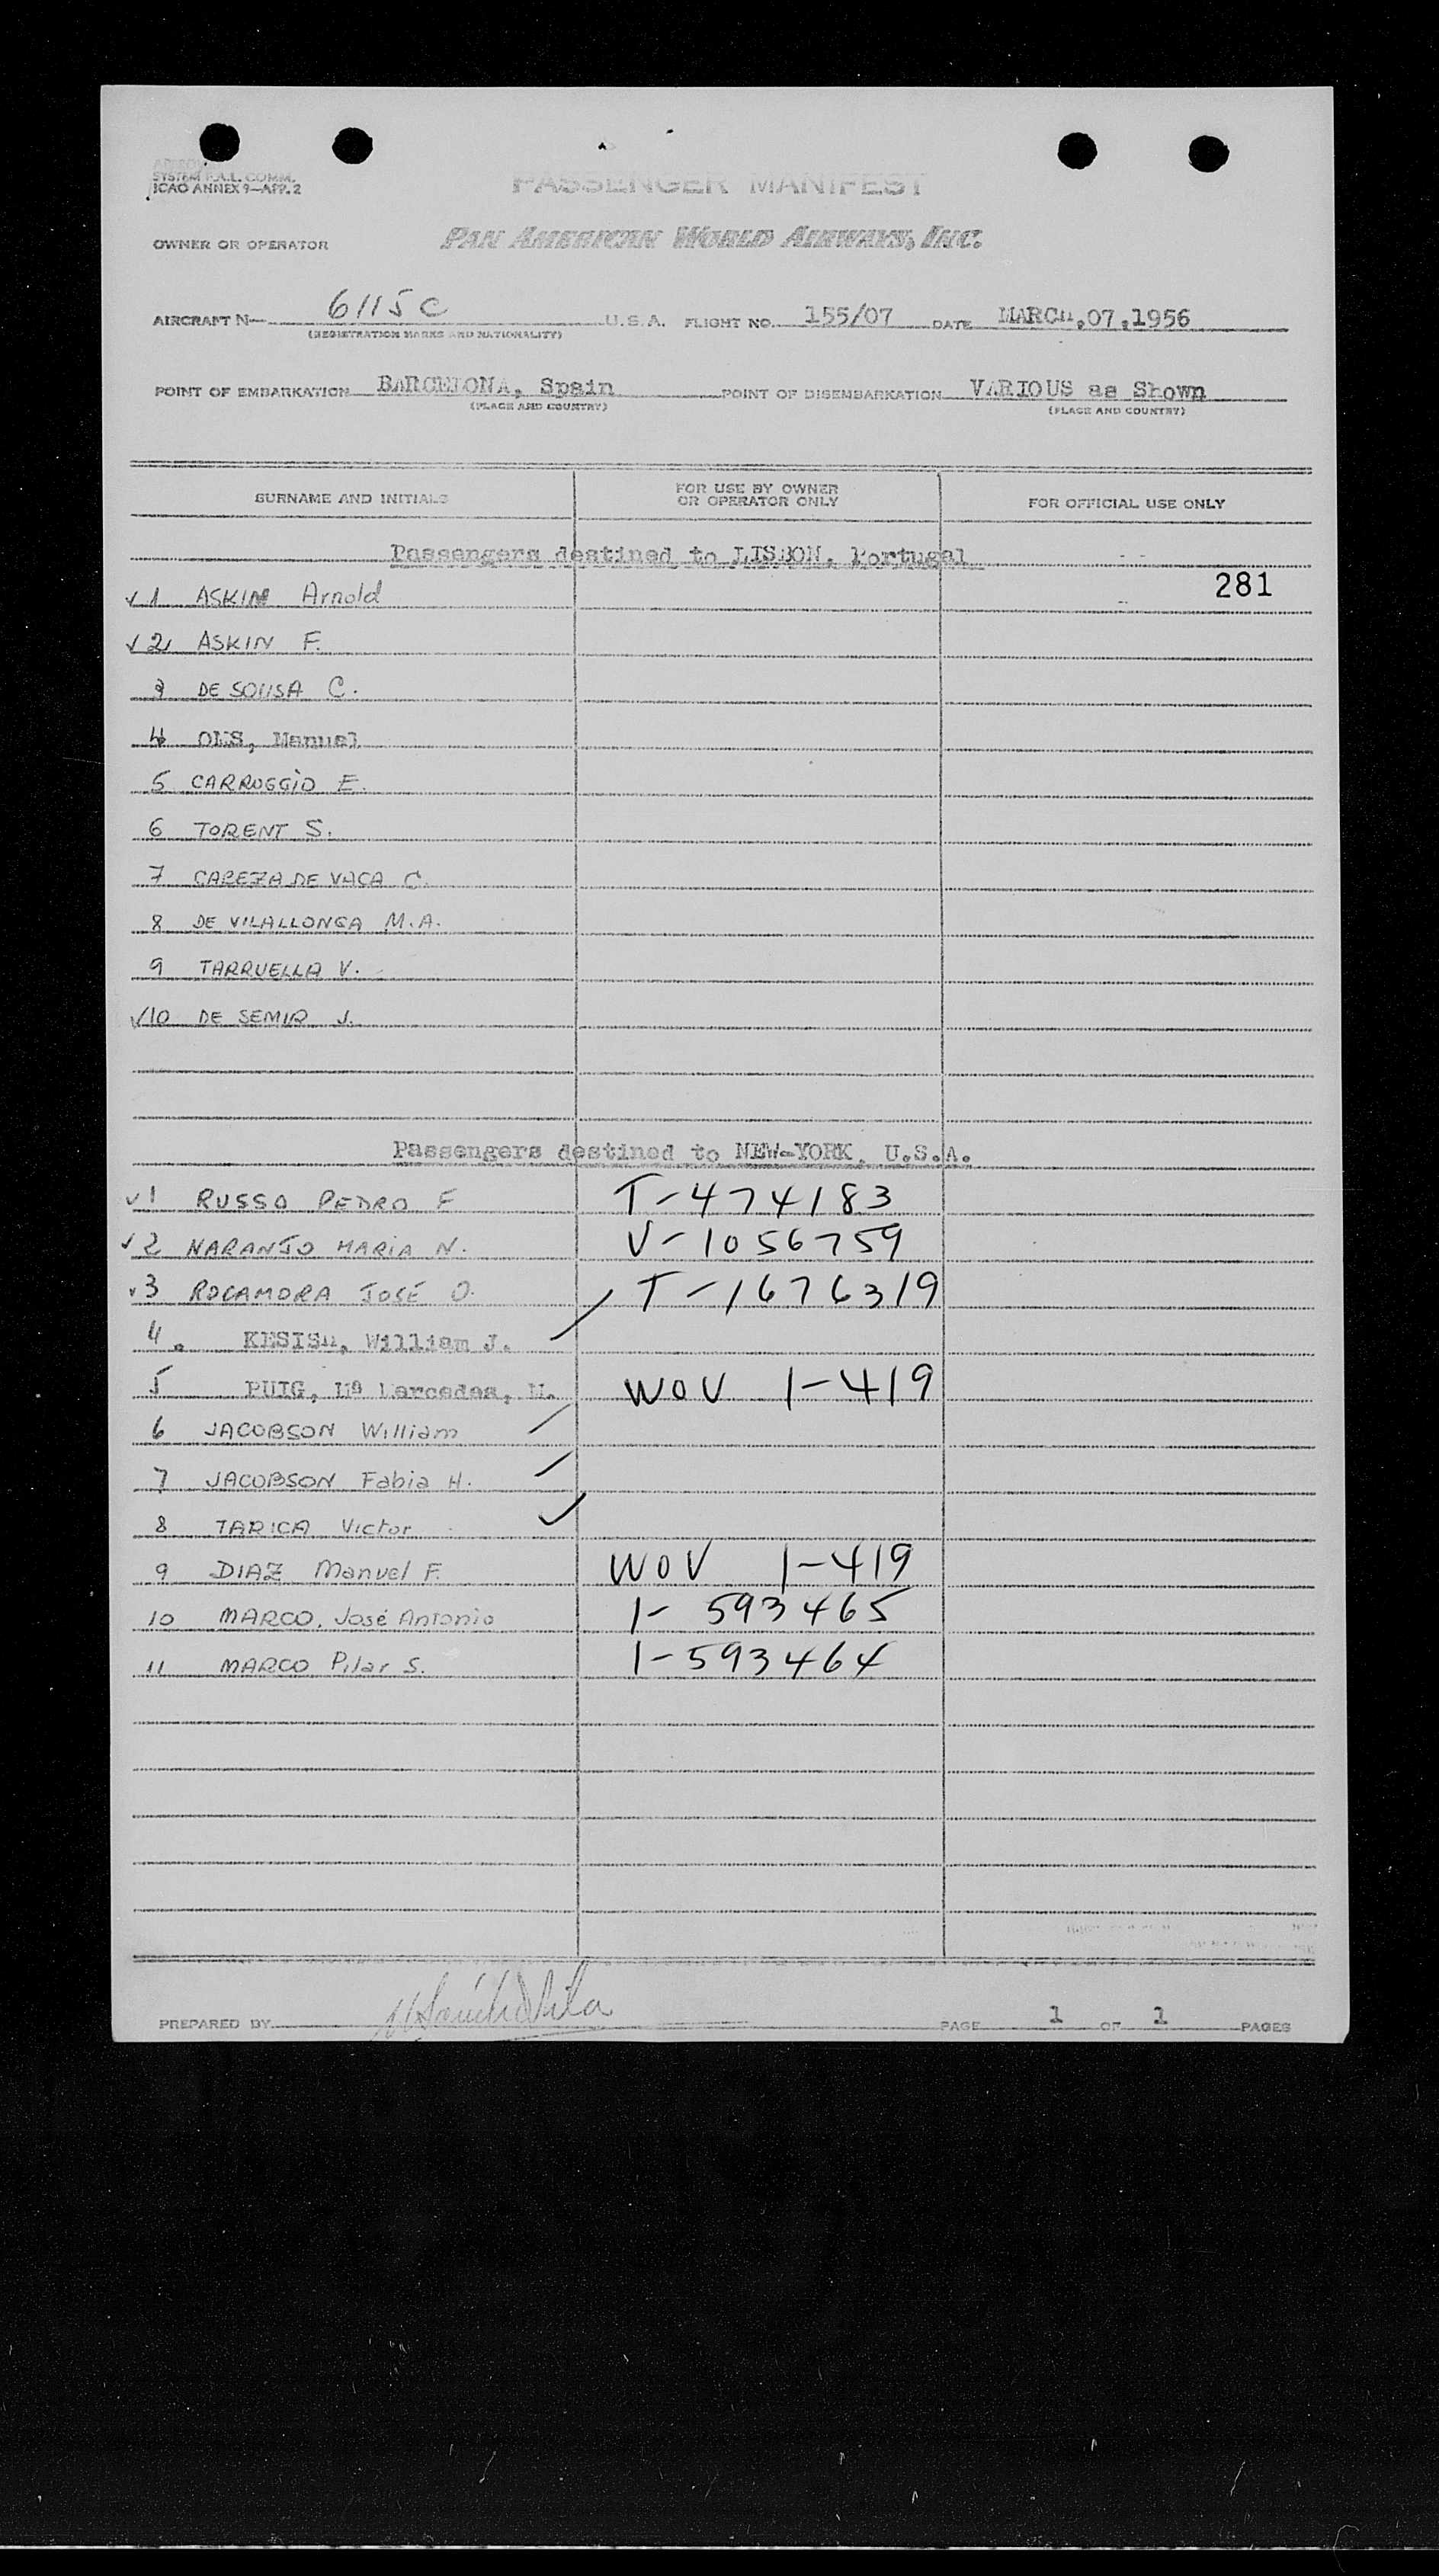 SYSTEM F.A.L. COMM.
ICAO ANNEX 9—APP. 2
PASSENGER MANIFEST
OWNER OR OPERATOR PAN AMERICAN WORLD AIRWAYS, INC.
AIRCRAFT N— 6115C U.S.A. FLIGHT NO. 155/07 DATE MARCH,07,1956
(REGISTRATION MARKS AND NATIONALITY)
POINT OF EMBARKATION BARCELONA, Spain POINT OF DISEMBARKATION VARIOUS as Shown
(PLACE AND COUNTRY) (PLACE AND COUNTRY)
SURNAME AND INITIALS FOR USE BY OWNER OR OPERATOR ONLY FOR OFFICIAL USE ONLY
Passengers destined to LISBON, Portugal
281
✓ 1 ASKIN Arnold
✓ 2 ASKIN F.
3 DE SOUSA C.
4 OMS, Manuel
5 CARROGGIO E.
6 TORENT S.
7 CABEZA DE VACA C.
8 DE VILALLONGA M.A.
9 TARRUELLA V.
✓ 10 DE SEMIR J.
Passengers destined to NEW-YORK, U.S.A.
✓ 1 RUSSO PEDRO F T-474183
✓ 2 NARANJO MARIA N. V-1056759
✓ 3 ROCAMORA JOSÉ O. T-1676319
4. KESISH, William J.
5 PUIG, Mª Mercedes, M. WOV 1-419
6 JACOBSON William
7 JACOBSON Fabia H.
8 TARICA Victor ✓
9 DIAZ Manuel F. WOV 1-419
10 MARCO, José Antonio 1-593465
11 MARCO Pilar S. 1-593464
PREPARED BY PAGE 1 OF 1 PAGES